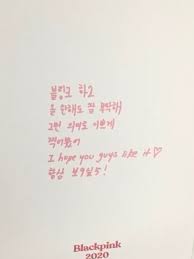 블링크 하2
올 한해도 잘 부탁해
그런 의미로 이쁘게
찍어봤어
I hope you guys like it ♡
항상 보9싶5!
Blackpink
2020